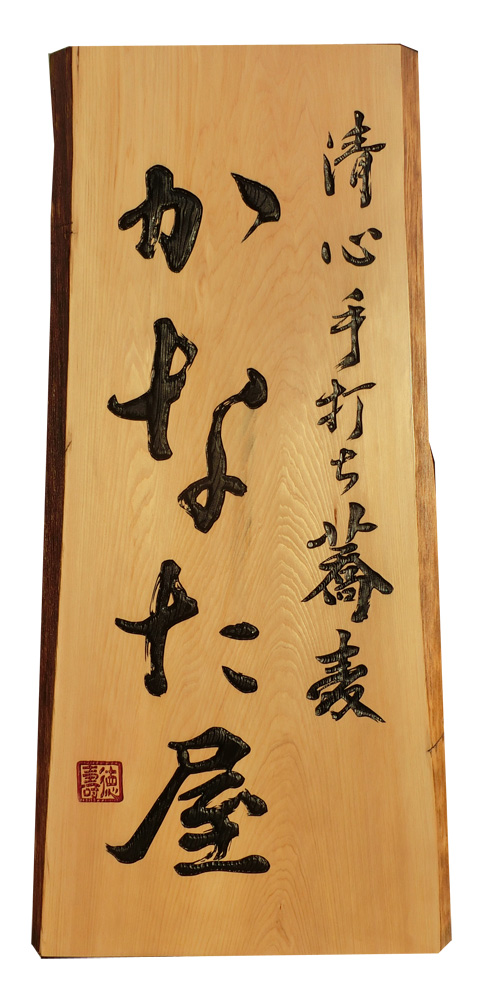 清心手打ち蕎麦
かなた屋